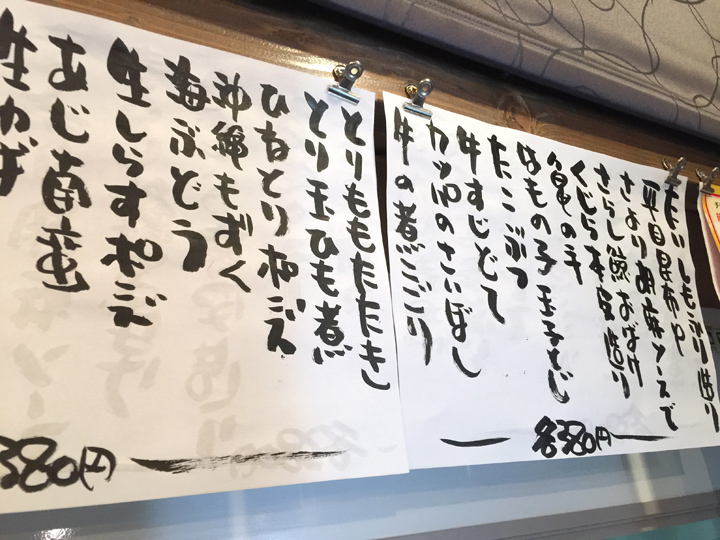 たいしもふり造り
平目昆布〆
さより胡麻ソースで
さらし鯨おばけ
くじら本皮造り
亀の手
はもの子玉子とじ
たこぶつ
牛すじどて
カッパのさいぼし
牛の煮こごり
各380円
とりももたたき
とり玉ひも煮
ひねとりポン酢
沖縄もずく
海ぶどう
生しらすポン酢
あじ南蛮
生ゆば
380円